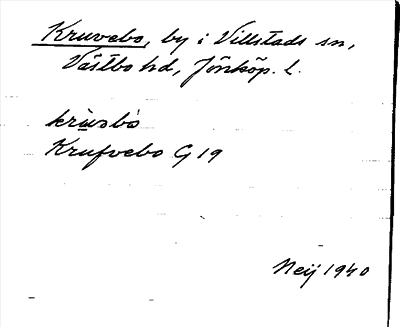 Kruvebo, by i Villstads sn,
Västbo hd, Jönköp. l.
krùvsbò
Krufvebo G 19
Neij 1940